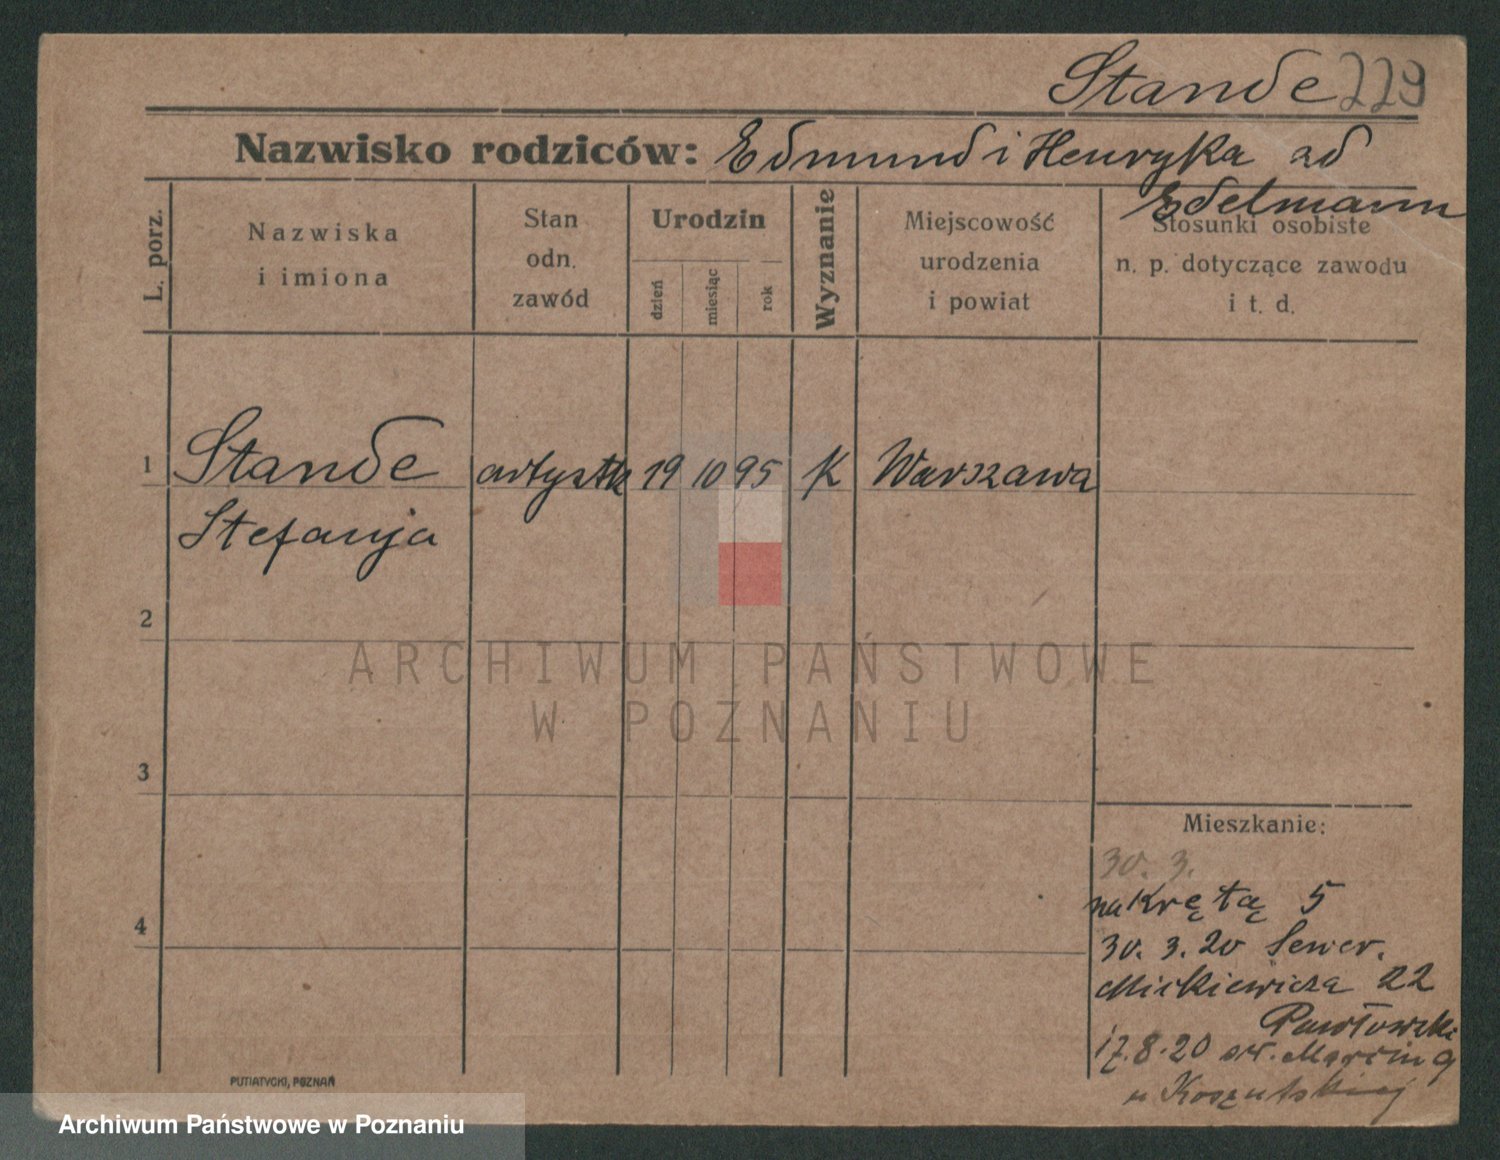 Stande 229
Nazwisko rodziców: Edmund i Henryka ad
Edelmann
L. porz.
Nazwiska
i imiona
Stan
odn.
zawód
Urodzin
dzień
miesiąc
rok
Wyznanie
Miejscowość
urodzenia
i powiat
Stosunki osobiste
n. p. dotyczące zawodu
i t. d.
1 Stande artystk 19 10 95 K Warszawa
Stefanja
2
3
4
ARCHIWUM PAŃSTWOWE
W POZNANIU
Mieszkanie:
30. 3.
na Krętą 5
30. 3. 20 Sewer.
Mielżyńskiego 22
Pawłowski
17. 8. 20 św. Marcin 9
u Koszutskiej
PUTIATYCKI, POZNAŃ
Archiwum Państwowe w Poznaniu